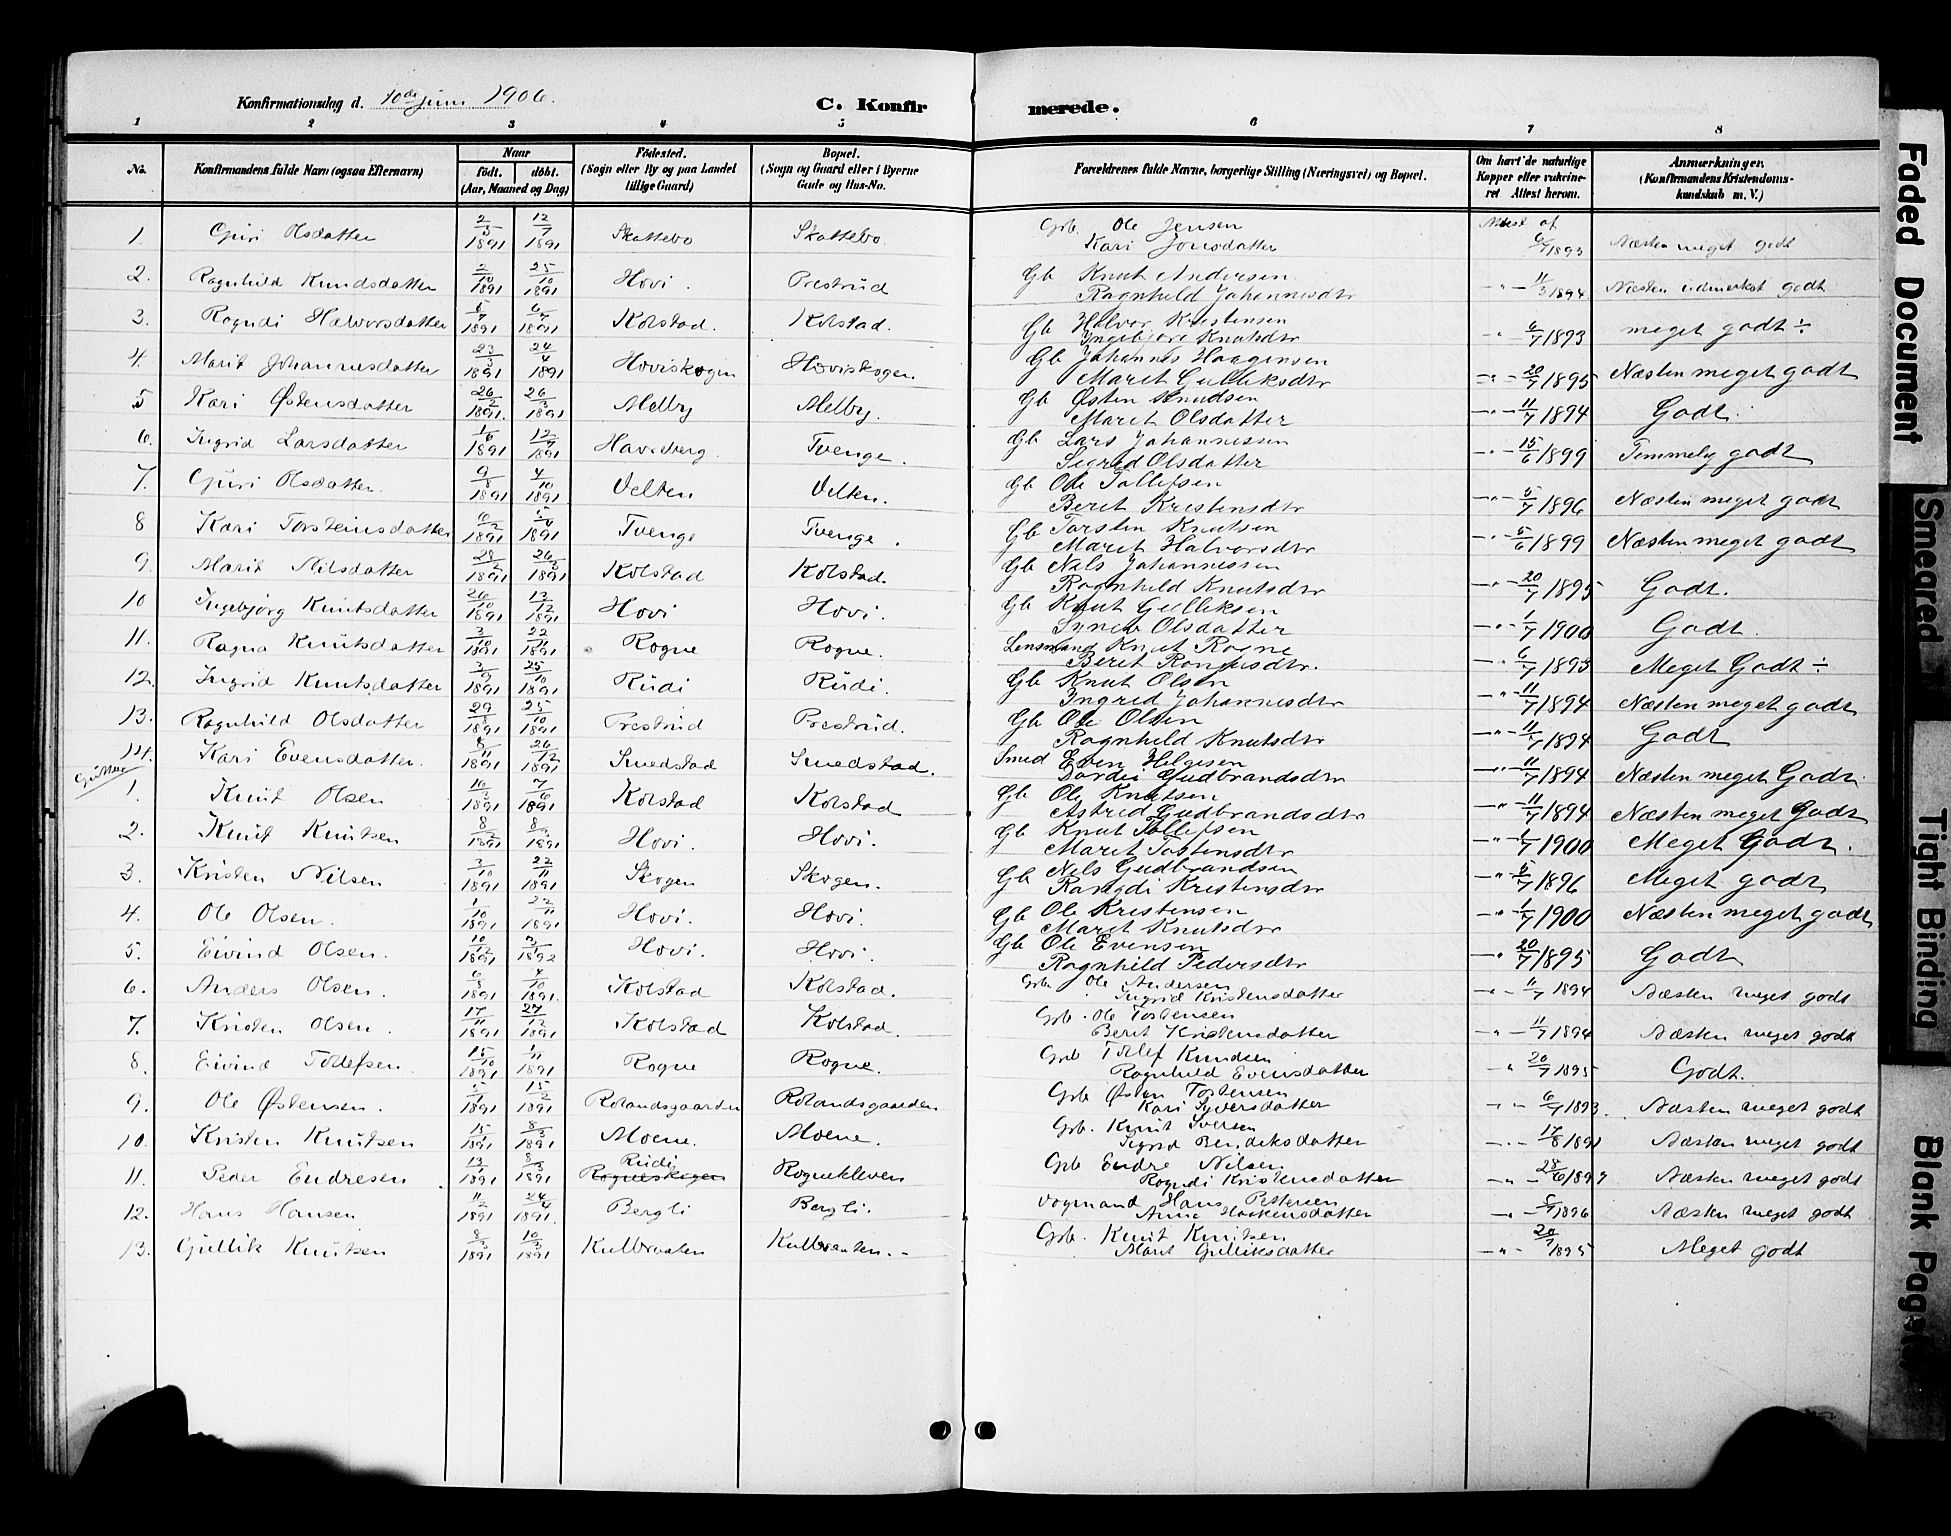 Konfirmationsdag d. 10de Juni 1906. C. Konfirmerede.
1 2 3 4 5 6 7 8
No. Konfirmandens fulde Navn (ogsaa Efternavn) Naar født. døbt. (Aar, Maaned og Dag) Fødested. (Sogn eller By og paa Landet tillige Gaard) Bopæl. (Sogn og Gaard eller i Byerne Gade og Hus-No. Forældrenes fulde Navne, borgerlige Stilling (Næringsvei) og Bopæl. Om havt de naturlige Kopper eller vakcineret Attest herom. Anmærkninger. (Konfirmandens Kristendomskundskab m. V.)
1 Guri Olsdatter 2/5 1891 12/7 1891 Skattebo Skattebo. Grb. Ole Jensen Attest af
Kari Jonsdatter 6/7 1893 Næsten meget godt
2. Ragnhild Knudsdatter 2/10 1891 25/10 1891 Hovi. Prestrud Gb Knut Andersen
Ragnhild Johannesdtr 11/3 1894 Næsten udmerket godt
3. Rogndi Halvorsdatter 1891 6/7 1891 Kolstad. Kolstad. Gb Halvor Kristensen
Ingebjørg Knutsdtr 6/7 1893 meget godt ÷
4. Marit Johannesdatter 23/3 1891 24/4 1891 Hoviskogen Hoviskogen Gb Johannes Haagensen
Marit Gulliksdtr 20/7 1895 Næsten meget godt
5 Kari Østensdatter 26/2 1891. 26/3 1891 Melby Melby. Gb Østen Knudsen
Maret Olsdatter 11/7 1894 Godt.
6. Ingrid Larsdatter 1/6 1891 12/7 1891 Haveberg. Tvenge. Gb Lars Johannessen
Sigrid Olsdatter 15/6 1899 Temmelig godt
7. Guri Olsdatter. 9/8 1891 4/10 1891 Velten Velten. Gb Ole Tollefsen
Beret Kristensdtr 5/7 1896 Næsten meget godt
8 Kari Torsteinsdatter 6/2 1891 5/4 1891 Tvenge Tvenge. Gb Torsten Knutsen
Maret Halvorsdtr 5/6 1899 Næsten meget godt
9. Marit Nilsdatter 28/2 1891 26/3 1891 Kolstad Kolstad. Gb Nils Johannessen
Ragnhild Knutsdtr 20/7 1895 Godt.
10 Ingebjørg Knutsdatter 26/10 1891 13/12 1891 Hovi Hovi. Gb Knut Gulliksen
Synev Olsdatter 1/7 1900 Godt.
11. Ragna Knutsdatter 3/10 1891 22/11 1891 Rogne Rogne. Lensmand Knut Rogne
Beret Rangdisdtr. 6/7 1893 Meget Godt ÷
12. Ingrid Knutsdatter 3/9 1891 25/10 1891 Rudi Rudi. Gb Knut Olsen
Ingrid Johannesdtr 11/7 1894 Næsten meget godt
13. Ragnhild Olsdatter 29/8 1891 25/10 1891 Prestrud Prestrud. Gb Ole Olsen
Ragnhild Knutsdtr 11/7 1894 Godt
14. Kari Evensdatter. 8/11 1891 26/12 1891 Smedstad Smedstad. Smed Even Helgesen
Dordei Gudbrandsdtr 11/7 1894 Næsten meget Godt.
Gutter
1. Knut Olsen 16/3 1891 7/6 1891 Kolstad Kolstad Gb Ole Knutsen
Astrid Gudbrandsdtr 11/7 1894 Næsten meget Godt
2. Knut Knutsen 8/2 1891 8/3 1891 Hovi. Hovi. Gb Knut Tollefsen
Maret Tostensdtr 1/7 1900 Meget Godt.
3. Kristen Nilsen 3/10 1891 22/11 1891 Skogen Skogen. Gb Nils Gudbrandsen
Rangdi Kristensdtr 5/7 1896 Meget godt
4. Ole Olsen. 1/10 1891 22/11 1891 Hovi. Hovi. Gb Ole Kristensen
Maret Knutsdtr 1/7 1900 Næsten meget godt
5. Eivind Olsen. 10/12 1891 3/1 1892 Hovi. Hovi. Gb Ole Evensen
Ragnhild Pedersdtr 20/7 1895 Godt
6. Anders Olsen. 6/8 1891 4/10 1891. Kolstad Kolstad. Grb. Ole Andersen
Ingrid Kristensdatter 11/7 1894 Næsten meget godt
7. Kristen Olsen. 17/11 1891 27/12 1891 Kolstad Kolstad. Grb. Ole Tostensen
Berit Kristensdatter 11/7 1894 Næsten meget godt
8. Eivind Tollefsen. 15/10 1891 1/11 1891 Rogne Rogne. Grb Tollef Knudsen
Ragnhild Evensdatter 20/7 1895 Godt.
9. Ole Østensen. 5/1 1891 15/2 1891 Rolandsgaarden Rolandsgaarden Grb Østen Tostensen
Kari Syversdatter 6/7 1893. Næsten meget godt
10. Kristen Knutsen 15/1 1891 8/3 1891 Moene. Moene. Grb. Knut Iversen
Sigrid Bendiksdatter 17/8 1891 Næsten meget godt
11. Peder Endresen 13/1 1891 8/3 1891 Rudi Rogneskogen Rognekleven Grb Endre Nilsen
Rogndi Kristensdatter Næsten meget godt
12. Hans Hansen 11/2 1891 24/4 1891. Bergli Bergli. Vogmand Hans Pettersen
Anne Haakensdatter 5/7 1896 Næsten meget godt
13. Gullik Knutsen 8/3 1891 10/5 1891 Kulbraaten Kulbraaten. Grb. Knut Knutsen
Marit Gulliksdatter 20/7 1895 Meget godt
Faded Document
Smeared
Tight Binding
Blank Pages